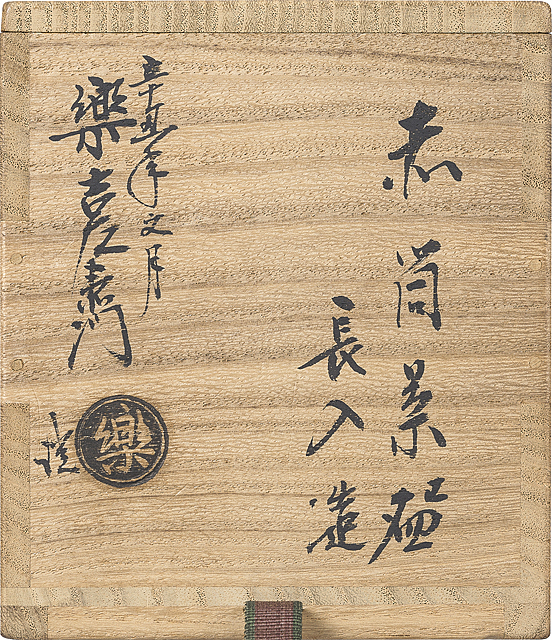 赤筒茶盌
長入造
辛丑年文月
樂吉左衛門
樂